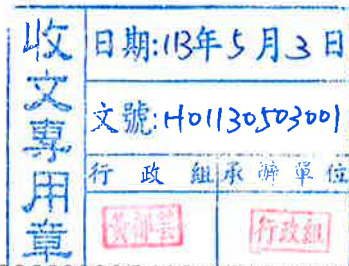 收文專用章
日期:113年5月3日
文號:H01130503001
行政組承辦單位
行政組